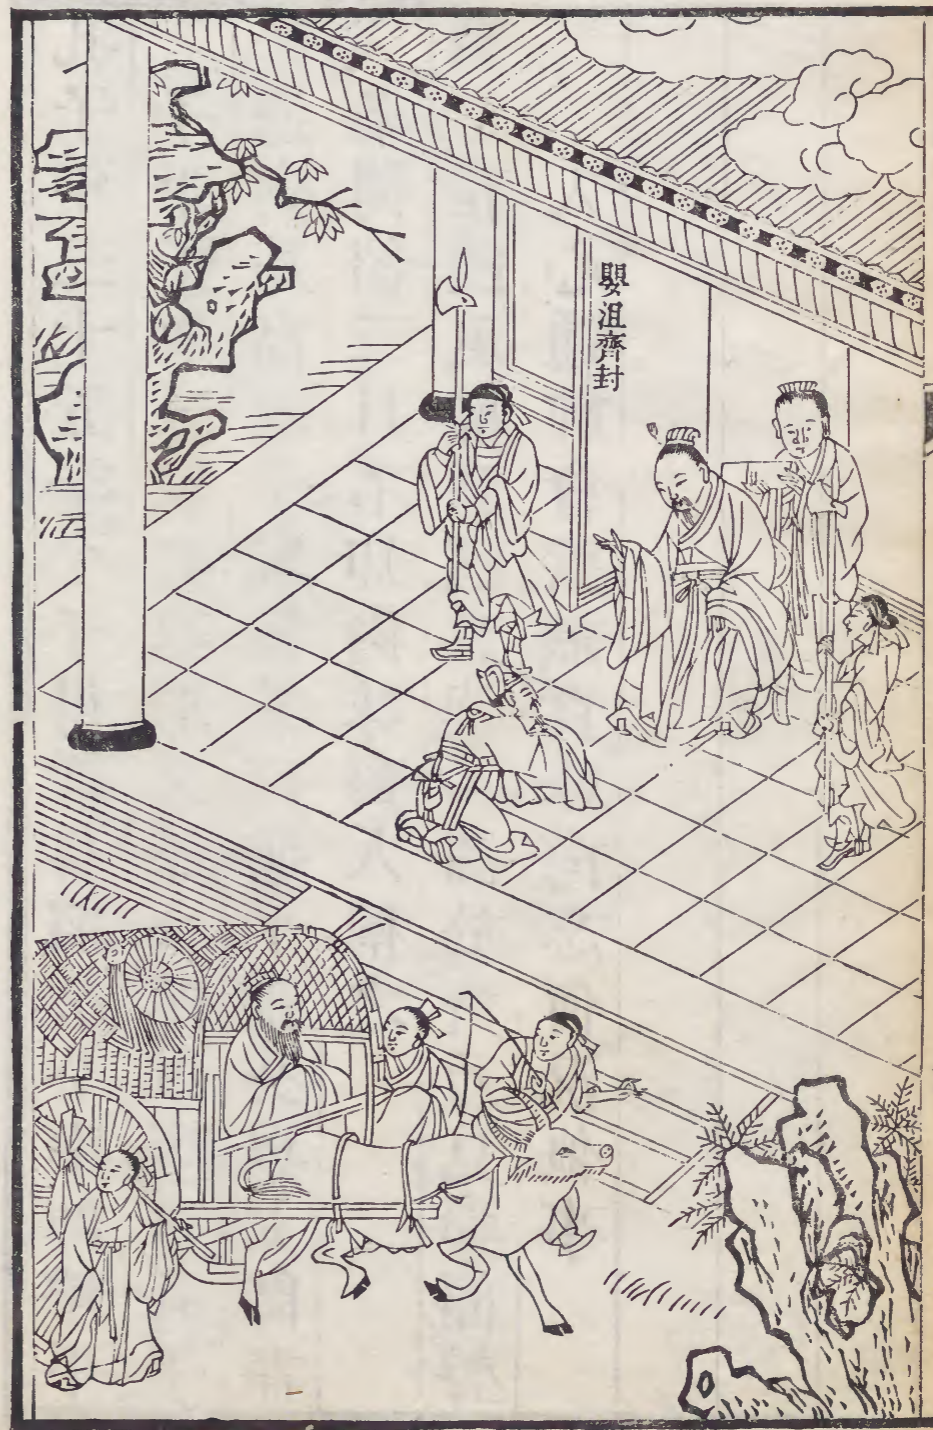 嬰沮齊封